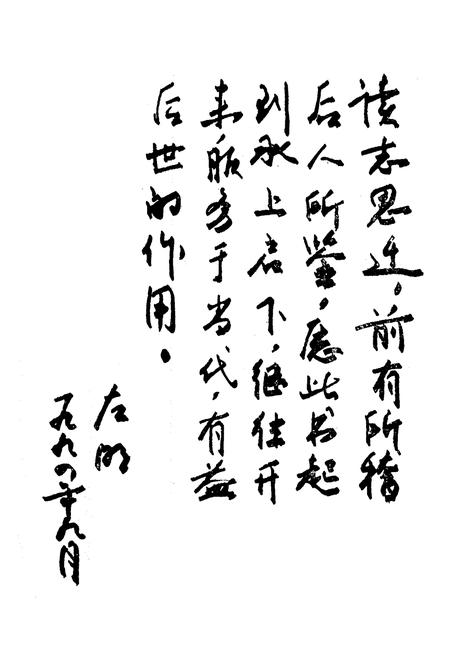 读志思迁，前有所稽
后人所鉴，愿此书起
到承上启下，继往开
来，服务于当代，有益
后世的作用。
左明
一九九四年九月